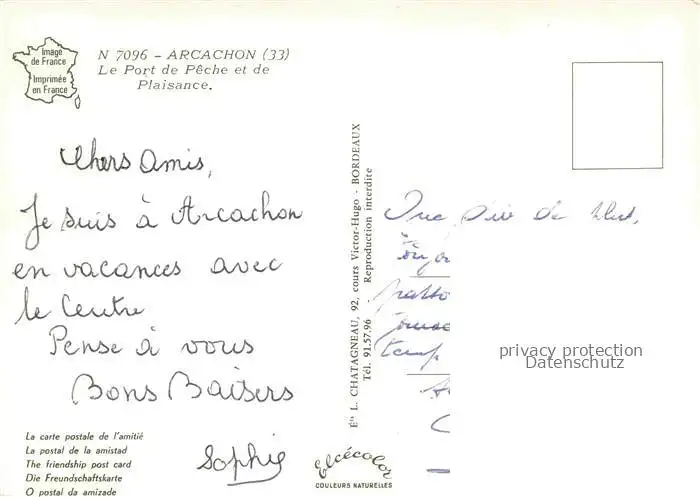 Image
de France
Imprimée
en France
N 7096 - ARCACHON (33)
Le Port de Pêche et de
Plaisance.
Chers Amis,
Je suis à Arcachon
en vacances avec
le Centre
Pense à vous
Bons Baisers
Sophie
La carte postale de l'amitié
La postal de la amistad
The friendship post card
Die Freundschaftskarte
O postal da amizade
Éts L. CHATAGNEAU, 92, cours Victor-Hugo - BORDEAUX
Tél. 91.57.96 Reproduction interdite
COULEURS NATURELLES
de
temp
privacy protection
Datenschutz